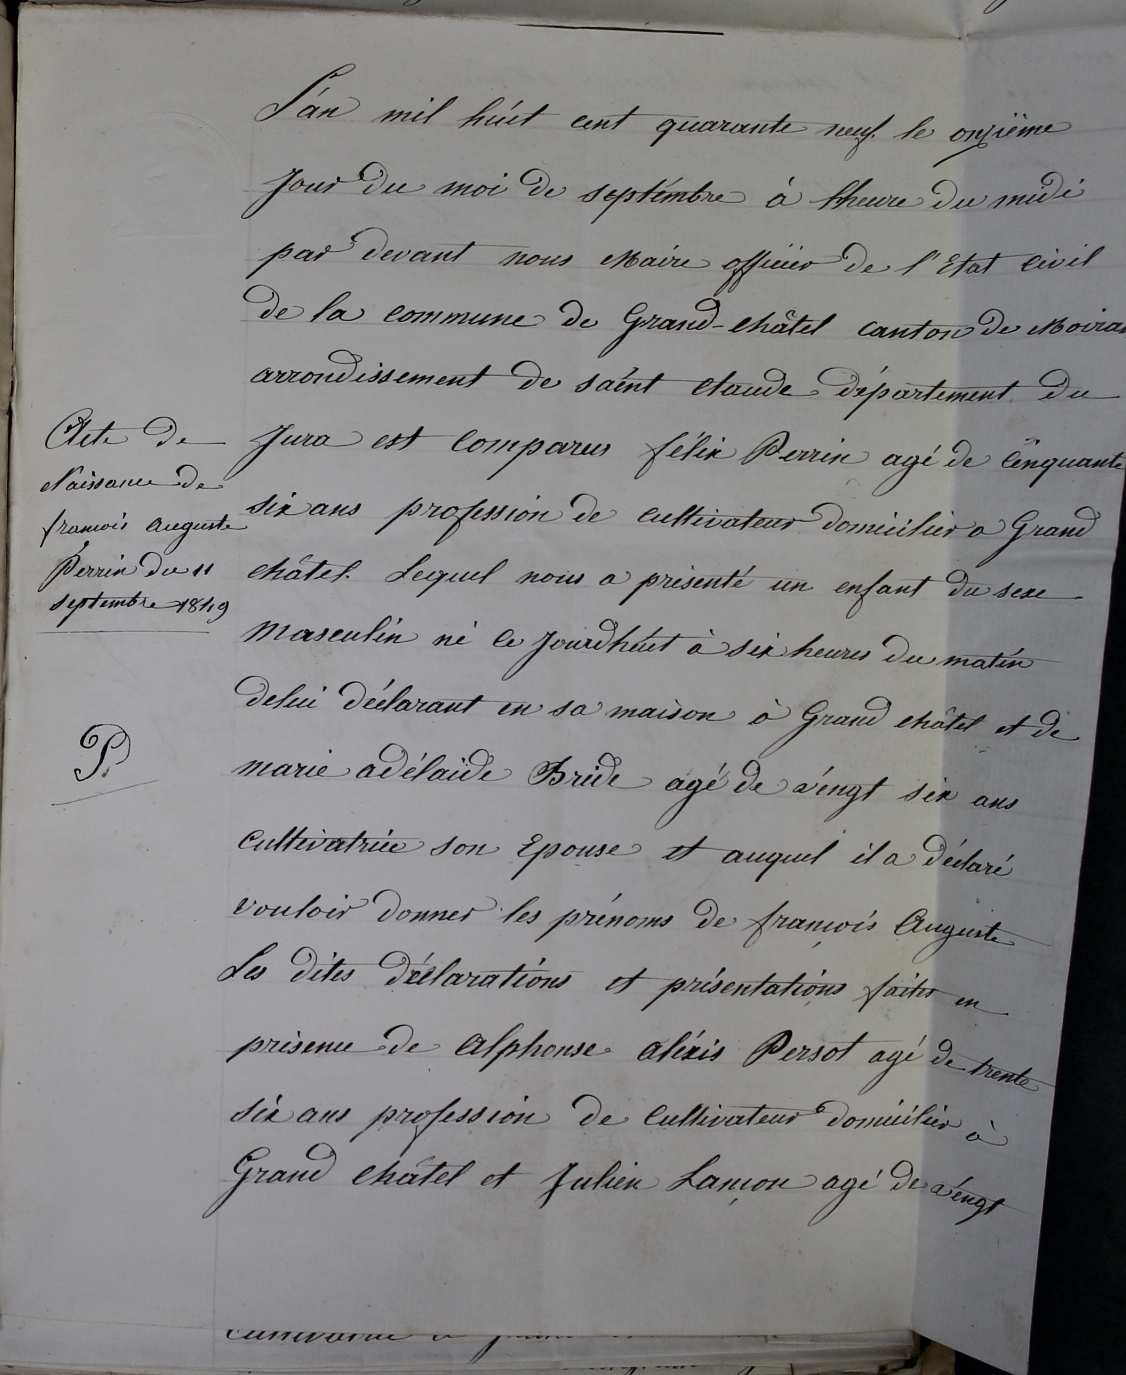 L'án mil húit cent quarante neuf. le onzième
Jour du moi de septémbre à l'heure du midi
par devant nous Maire officier de l'Etat civil
de la commune de Grand-châtel canton de Moiran
arrondissement de saént claude département du
Jura est comparus félix Perrin agé de cinquante
six ans profession de cultivateur domicilier a Grand
châtel. Lequel nous a présenté un enfant du sexe
masculin né ce jourdhúit à six heures du matin
delui déclarant en sa maison à Grand châtel et de
marie adélaide Bride agé de véngt six ans
cultivatrice son Epouse et auquel il a déclaré
vouloir donner les prénoms de françois Auguste
Les dites déclarations et présentations faites en
présence de alphonse aléxis Persot agé de trente
six ans profession de cultivateur domicilier à
Grand châtel et Julien Lançon agé de véngt
Acte de
Naissance de
francois auguste
Perrin du 11
septembre 1849
P.